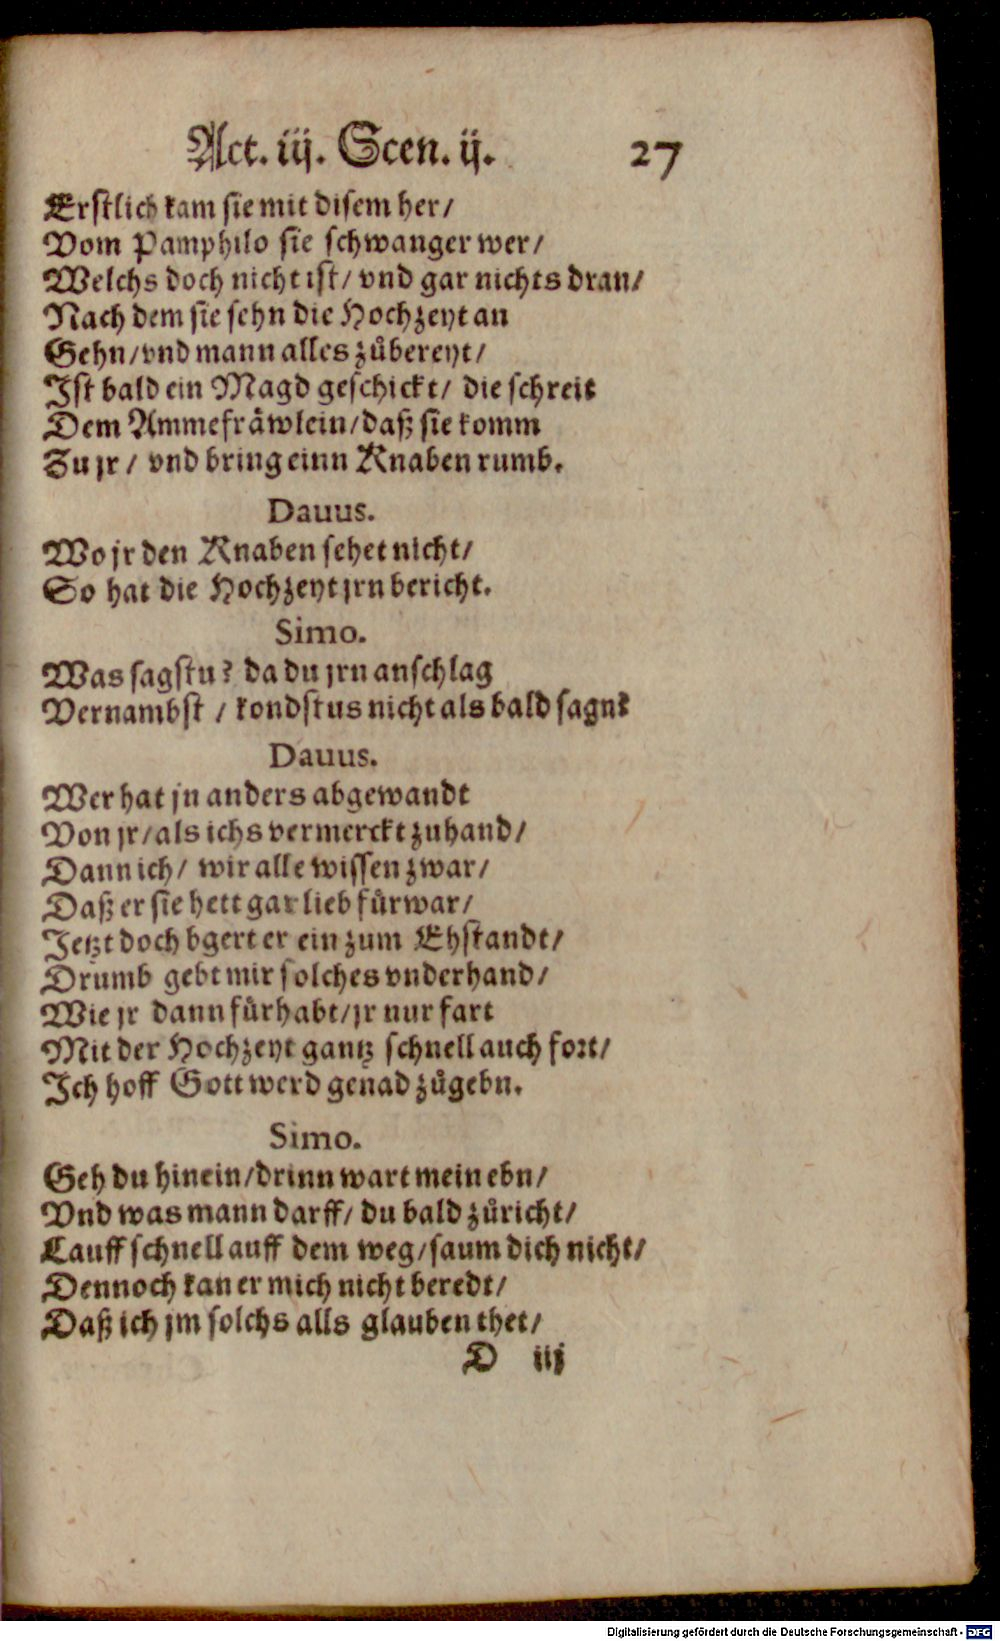 Act. iij. Scen. ij. 27
Erstlich kam sie mit disem her/
Vom Pamphilo sie schwanger wer/
Welchs doch nicht ist/ vnd gar nichts dran/
Nach dem sie sehn die Hochzeyt an
Gehn/vnd mann alles zůbereyt/
Ist bald ein Magd geschickt/ die schreit
Dem Ammefråwlein/daß sie komm
Zu jr/ vnd bring einn Knaben rumb.
Dauus.
Wo jr den Knaben sehet nicht/
So hat die Hochzeyt jrn bericht.
Simo.
Was sagstu? da du jrn anschlag
Vernambst / kondstus nicht als bald sagn?
Dauus.
Wer hat jn anders abgewandt
Von jr/als ichs vermerckt zuhand/
Dann ich/ wir alle wissen zwar/
Daß er sie hett gar lieb fůrwar/
Jetzt doch bgert er ein zum Ehstandt/
Drumb gebt mir solches vnderhand/
Wie jr dann fůrhabt/jr nur fart
Mit der Hochzeyt gantz schnell auch fort/
Ich hoff Gott werd genad zůgebn.
Simo.
Geh du hinein/drinn wart mein ebn/
Vnd was mann darff/ du bald zůricht/
Lauff schnell auff dem weg/saum dich nicht/
Dennoch kan er mich nicht beredt/
Daß ich jm solchs alls glauben thet/
D iij
Digitalisierung gefördert durch die Deutsche Forschungsgemeinschaft - DFG